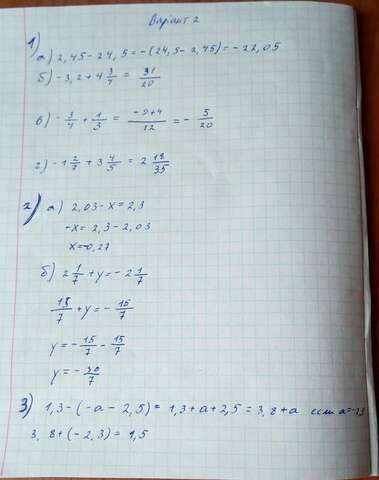 Вариант 2
1)
а) 2,45 - 24,5 = -(24,5 - 2,45) = -22,05
б) -3,2 + 4 3/4 = 31/20
в) -3/4 + 1/3 = -9+4/12 = -5/20
г) -1 2/7 + 3 4/5 = 2 18/35
2) а) 2,03 - x = 2,3
-x = 2,3 - 2,03
x = -0,27
б) 2 1/7 + y = -2 1/7
15/7 + y = -15/7
y = -15/7 - 15/7
y = -30/7
3) 1,3 - (-a - 2,5) = 1,3 + a + 2,5 = 3,8 + a если a = -2,3
3,8 + (-2,3) = 1,5